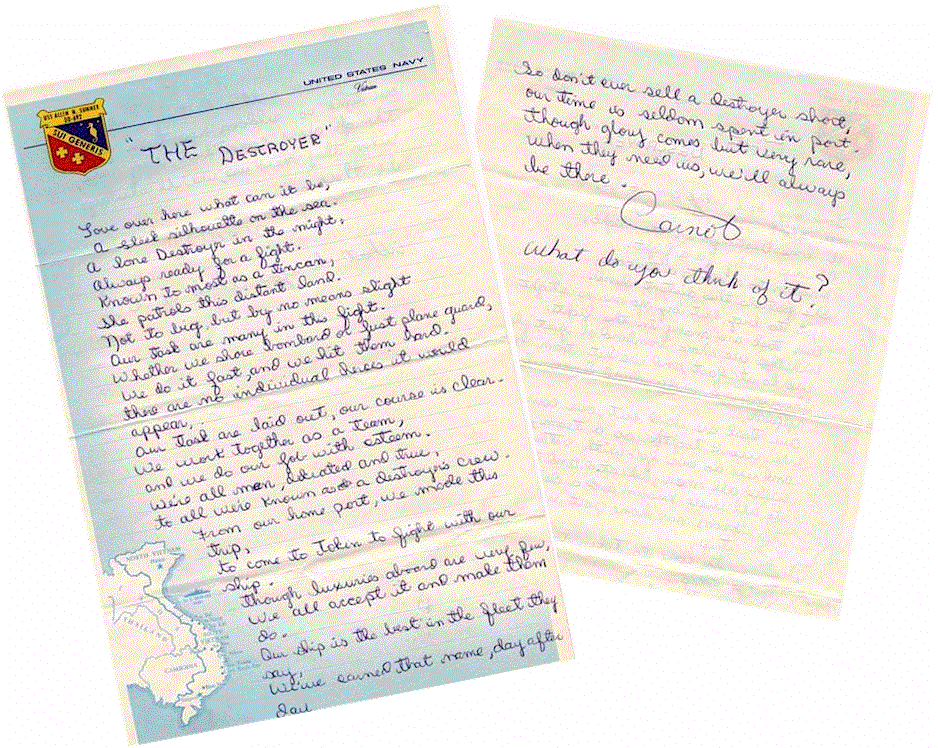 UNITED STATES NAVY
Vietnam
USS ALLEN M. SUMNER
DD-692
SUI GENERIS
"THE DESTROYER"
Love over here what can it be,
A sleek silhouette on the sea.
A lone Destroyer in the night,
Always ready for a fight.
Known to most as a tincan,
She patrols this distant land.
Not to big, but by no means slight
Our task are many in this fight.
Whether we shore bombard or just plane guard,
We do it fast, and we hit them hard.
there are no individual heroes it would
appear,
Our task are laid out, our course is clear.
We work together as a team,
and we do our job with esteem.
We're all men, dedicated and true,
to all we're known as a destroyer's crew.
From our home port, we made this
trip,
to come to Tokin to fight with our
ship.
though luxuries aboard are very few,
We all accept it and make them
do.
Our ship is the best in the fleet they
say,
We've earned that name, day after
day
NORTH VIETNAM
THAILAND
CAMBODIA
So don't ever sell a destroyer short,
our time is seldom spent in port.
though glory comes but very rare,
when they need us, we'll always
be there.
what do you think of it?